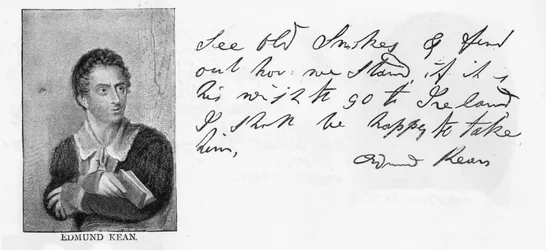 EDMUND KEAN.
See Old Smokey & find
out how we stand, if it is
his wish to go to Ireland
I shall be happy to take
him,
Edmund Kean